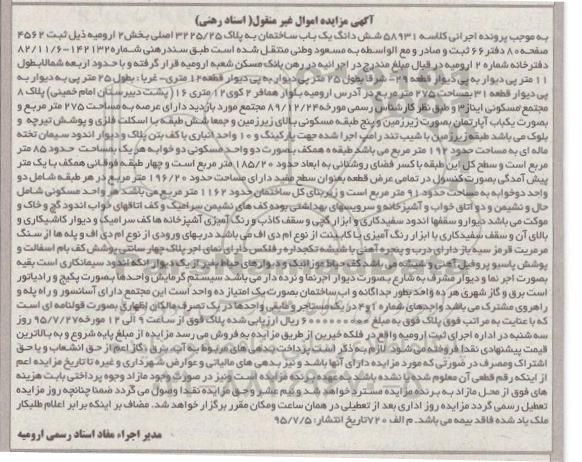 آگهی مزایده اموال غیر منقول( اسناد رهنی)
به موجب پرونده اجرائی کلاسه ۵۸۹۳۱ شش دانگ یک باب ساختمان به پلاک ۳۲۲۵/۲۵ اصلی بخش ۲ ارومیه ذیل ثبت ۴۵۶۲
صفحه ۸۰ دفتر ۶۶ ثبت و صادر و مع الواسطه به مسعود وطنی منتقل شده است طبق سند رهنی شماره ۱۴۲۱۳۲-۸۲/۱۱/۶
دفترخانه شماره ۲ ارومیه در قبال مبلغ مندرج در اجرائیه در رهن بانک مسکن شعبه ارومیه قرار گرفته و با حدود اربعه شمالا بطول
۱۱ متر پی دیوار به پی دیوار قطعه ۲۹- شرقا بطول ۲۵ متر پی دیوار به پی دیوار قطعه ۱۲ متری- غربا: بطول ۲۵ متر پی به دیوار به
پی دیوار قطعه ۳۱ بمساحت ۲۷۵ متر مربع در آدرس ارومیه بلوار همافر ۲ کوی ۱۲ متری ۱۶ ( پشت دبیرستان امام خمینی) پلاک ۸
مجتمع مسکونی ایثار ۳ و طبق نظر کارشناس رسمی مورخه ۸۹/۱۲/۲۴ مجتمع مورد بازدید دارای عرصه به مساحت ۲۷۵ متر مربع و
بصورت یکباب آپارتمان بصورت زیرزمین و پنج طبقه مسکونی بالای زیرزمین و جمعا شش طبقه با اسکلت فلزی و پوشش تیرچه و
بلوک می باشد طبقه زیرزمین با شیب تند رامپ اجرا شده جهت پارکینگ و ۱۰ واحد انباری با کف بتن پلاک و دیوار اندود سیمان تخته
ماله ای به مساحت حدود ۱۹۲ متر مربع می باشد طبقه ه همکف بصورت دو واحد مسکونی دو خوابه هر یک بمساحت حدود ۸۵ متر
مربع است و سطح کل این طبقه با کسر فضای روشنائی به ابعاد حدود ۱۸۵/۲۰ متر مربع است و چهار طبقه فوقانی همکف با یک متر
پیش آمدگی بصورت کنسول در تمامی عرض قطعه بعنوان سطح مفید دارای مساحت حدود ۱۹۶/۲۰ متر مربع در هر طبقه شامل دو
واحد دوخوابه به مساحت حدود ۹۱ متر مربع است و زیربنای کل ساختمان حدود ۱۱۶۲ متر مربع می باشد هر واحد مسکونی شامل
حال و نشیمن و دو اتاق خواب و آشپزخانه و سرویسهای بهداشتی بوده کف های نشیمن سرامیک و کف اتاقهای خواب اندود گچ و خاک و
موکت می باشد دیوار و سقفها اندود سفیدکاری و ابزار گچی و سقف کاذب و رنگ آمیزی آشپزخانه ها کف سرامیک و دیوار کاشیکاری و
بالای آن و سقف سفیدکاری با ابزار رنگ آمیزی با کابینت از نوع ام دی اف می باشد دربهای ورودی از نوع ام دی اف و پله ها از سنگ
مرمریت قرمز سیه باز دارای درب و پنجره آهنی با شیشه تکجداره رفلکس دارای نمای اجر پلاک چهار سانتی پوشش کف بام اسفالت و
پوشش پاسیو پروفیل آهنی و شیشه می باشد کف حیاط موزائیک و دیوارهای حیاط غیر از یک دیوار که اندود سیمانکاری است بقیه
بصورت اجر نما و دیوار مشرف به شارع بصورت دیوار اجرنما و نرده دار می باشد سیستم گرمایش واحدها بصورت پکیج و رادیاتور
است برق و گاز شهری هر ده واحد بطور جداگانه و آب ساختمان بصورت یک امتیاز ده واحد است این مجتمع دارای آسانسور و راه پله و
راهروی مشترک می باشد واحدهای شماره ۱ و ۴ در یک مستاجر و مابقی واحدها در یک تصرف مالک اظهاری بصورت قولنامه ای است
که با عنایت به مراتب فوق پلاک فوق به مبلغ ۶۰۰۰۰۰۰۰۰۰ ریال ارزیابی شده پلاک فوق از ساعت ۹ الی ۱۲ مورخه ۹۵/۷/۲۷ روز
سه شنبه در اداره اجرای ثبت ارومیه واقع در فلکه خیرین از طریق مزایده به فروش می رسد مزایده از مبلغ پایه شروع و به بالاترین
قیمت پیشنهادی نقدا فروخته می شود لازم به ذکر است پرداخت بدهی های مربوط به آب ،برق ، گاز اعم از حق انشعاب و یا حق
اشتراک و مصرف در صورتی که مورد مزایده دارای آنها باشد و نیز بدهی های مالیاتی و عوارض شهرداری و غیره تا تاریخ مزایده اعم
از اینکه رقم قطعی آن معلوم شده یا نشده باشد به عهده برنده مزایده است و نیز در صورت وجود مازاد وجوه پرداختی بابت هزینه
های فوق از محل مازاد به برنده مزایده مسترد خواهد شد و نیم عشر و حق مزایده نقدا وصول می گردد ضمنا چنانچه روز مزایده
تعطیل رسمی گردد مزایده روز اداری بعد از تعطیلی در همان ساعت و مکان مقرر برگزار خواهد شد. مضاف بر اینکه برابر اعلام طلبکار
ملک یاد شده فاقد بیمه می باشد. م الف ۷۲۰ تاریخ انتشار: ۹۵/۷/۵
مدیر اجراء مفاد اسناد رسمی ارومیه